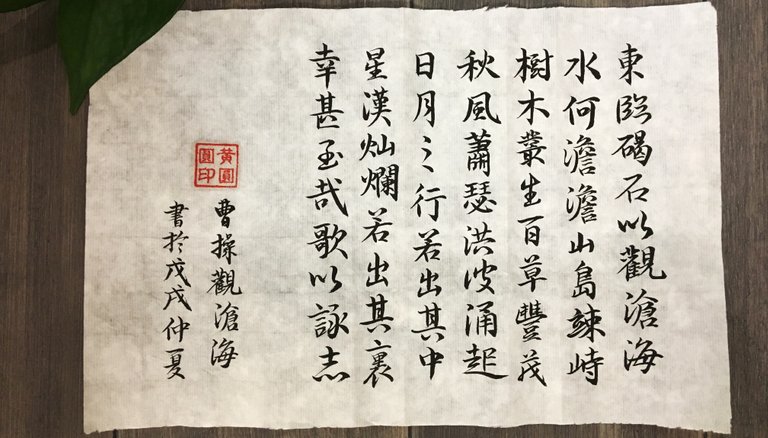 東臨碣石以觀滄海
水何澹澹山島竦峙
樹木叢生百草豐茂
秋風蕭瑟洪波涌起
日月之行若出其中
星漢燦爛若出其裏
幸甚至哉歌以詠志
曹操觀滄海
書於戊戌仲夏
黃圓圓印